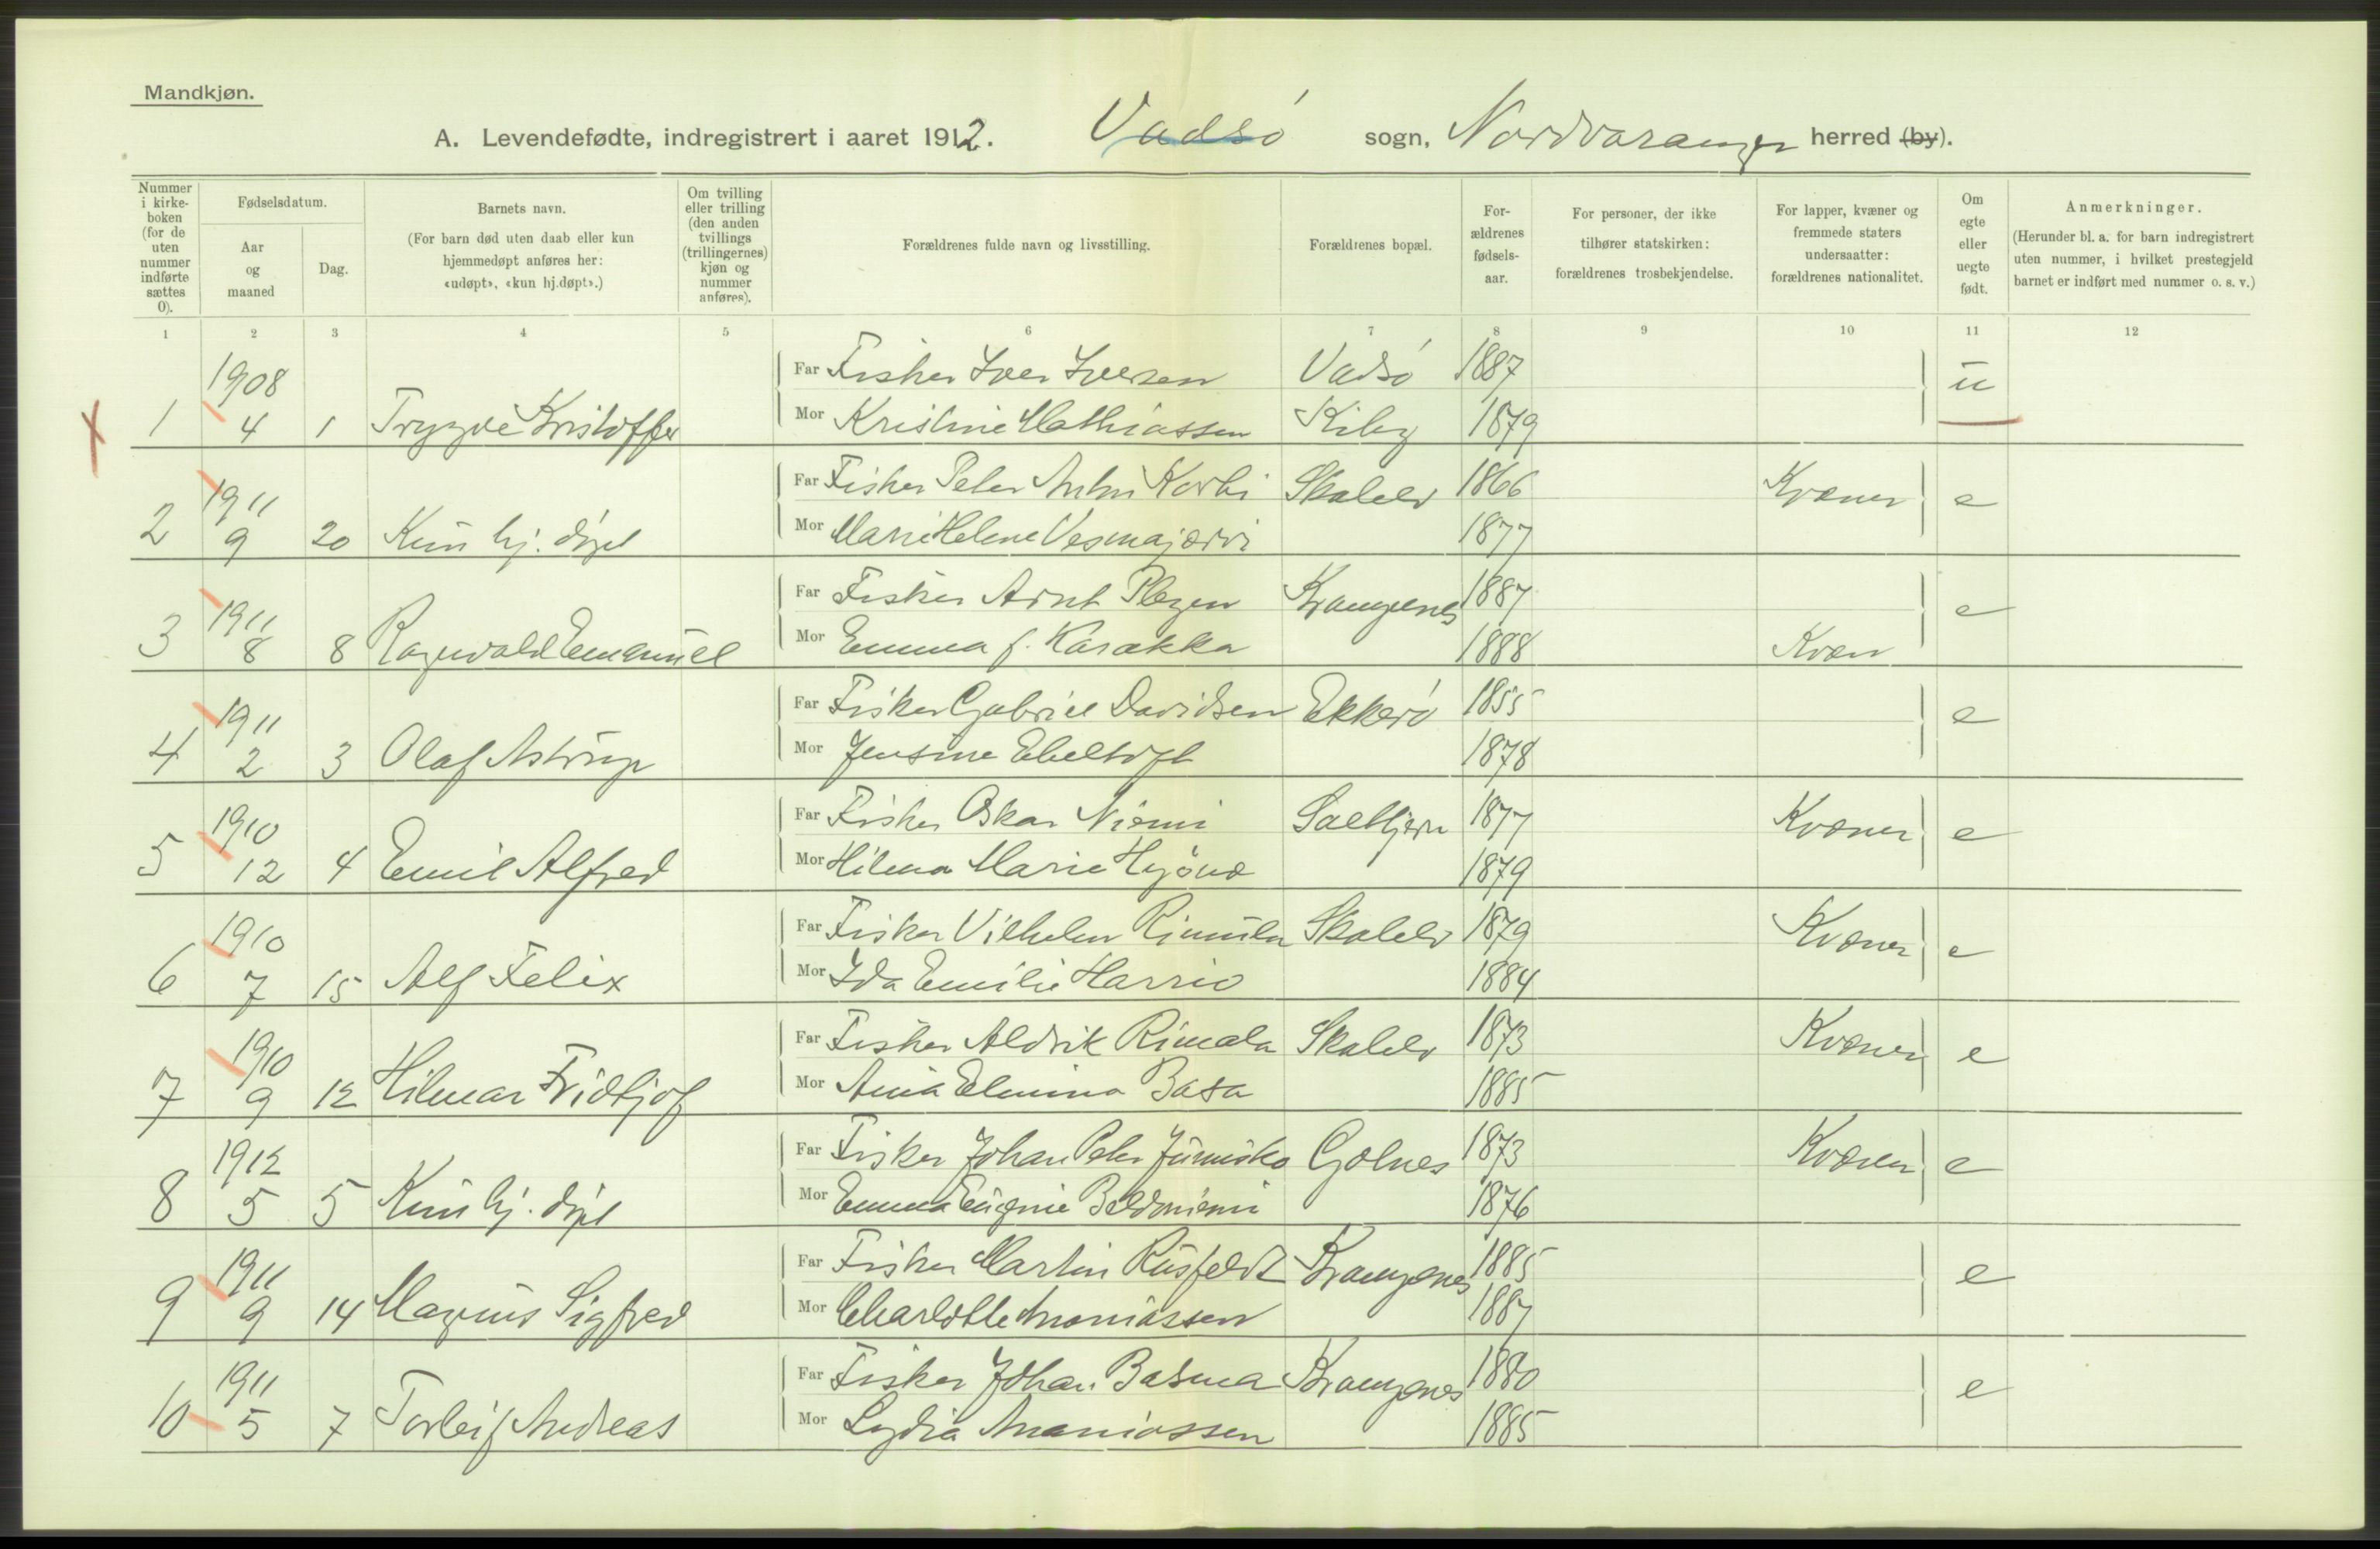 Mandkjøn.
A. Levendefødte, indregistrert i aaret 1912. Vadsø sogn, Nordvaranger herred (by).
Nummer i kirke-boken (for de uten nummer indførte sættes 0).
Fødselsdatum.
Aar og maaned
Dag.
Barnets navn.
(For barn død uten daab eller kun hjemmedøpt anføres her: «udøpt», «kun hj.døpt».)
Om tvilling eller trilling (den anden tvillings (trillingernes) kjøn og nummer anføres).
Forældrenes fulde navn og livsstilling.
Forældrenes bopæl.
For-ældrenes fødsels-aar.
For personer, der ikke tilhører statskirken: forældrenes trosbekjendelse.
For lapper, kvæner og fremmede staters undersaatter: forældrenes nationalitet.
Om egte eller uegte født.
Anmerkninger.
(Herunder bl. a. for barn indregistrert uten nummer, i hvilket prestegjeld barnet er indført med nummer o. s. v.)
1 2 3 4 5 6 7 8 9 10 11 12
1908 Far Fisker Iver Iversen Vadsø 1887 u
1 4 1 Trygve Kristoffer Mor Kristine Mathiassen Kiby 1879
1911 Far Fisker Peter Anton Korbi Skalelv 1866 Kvæner e
2 9 20 Kun hj. døpt Mor Marie Helene Vesmajærvi 1877
1911 Far Fisker Arnt Plazen Krampenes 1887 e
3 8 8 Ragnvald Emanuel Mor Emma f. Karakka 1888 Kvæn
1911 Far Fisker Gabriel Davidsen Ekkerø 1855 e
4 2 3 Olaf Astrup Mor Jensine Ebeltoft 1878
1910 Far Fisker Oskar Niemi Saltkjern 1877 Kvæner e
5 12 4 Emil Alfred Mor Hilma Marie 1879
1910 Far Fisker Vilhelm Rimula Skalelv 1879 Kvæner e
6 7 15 Alf Felix Mor Ida Emilie Harrio 1884
1910 Far Fisker Aldrik Rimala Skalelv 1873 Kvæner e
7 9 12 Hilmar Fridtjof Mor Anna Elmina Basa 1885
1912 Far Fisker Johan Peter Junnisko Golnes 1873 Kvæner e
8 5 5 Kun hj. døpt Mor Emma Eugenie Beldoniemi 1876
1911 Far Fisker Martin Rusfeldt Krampenes 1885 e
9 9 14 Magnus Sigfred Mor Charlotte Ananiassen 1887
1911 Far Fisker Johan Basma Krampenes 1880 e
10 5 7 Torleif Andreas Mor Lydia Ananiassen 1885